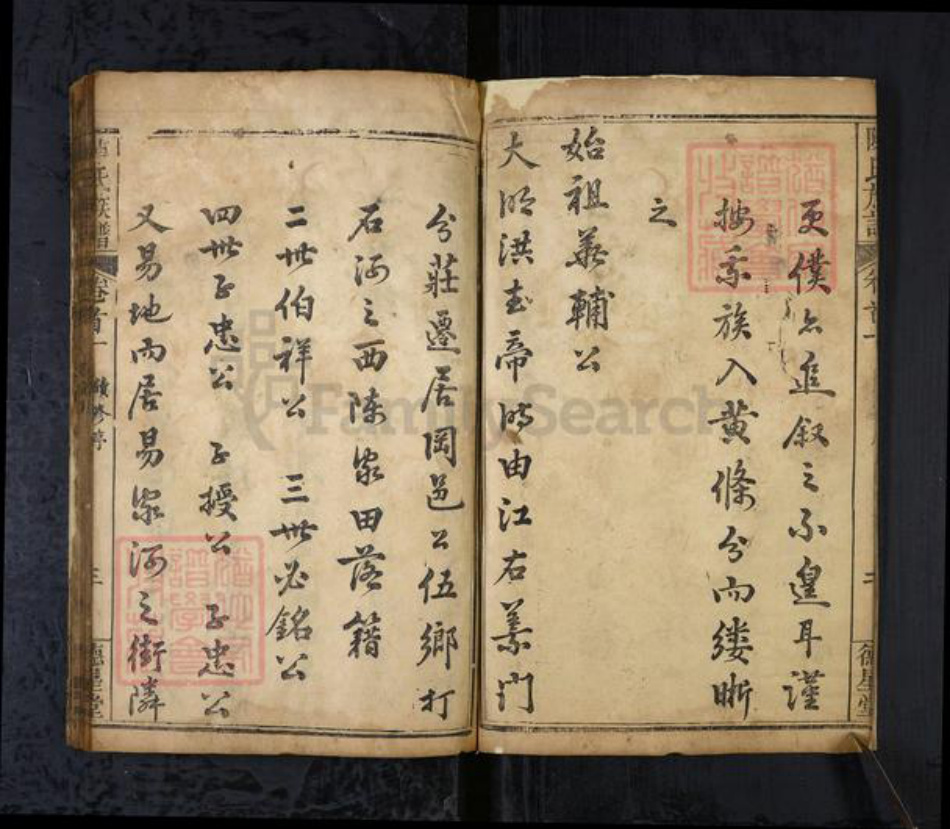 更僕亦追叙之不遑耳謹
按吾族入黄條分而缕晰
之
始祖義輔公
大明洪武帝時由江右義門
分莊遷居岡邑上伍鄉打
石河之西陈家田落籍
二世伯祥公 三世必銘公
四世子忠公 子授公 子惠公
又易地而居易家河之街隣
陳氏族譜 卷首一
德星堂
陳氏族譜 卷首一 續修序 三
德星堂
FamilySearch